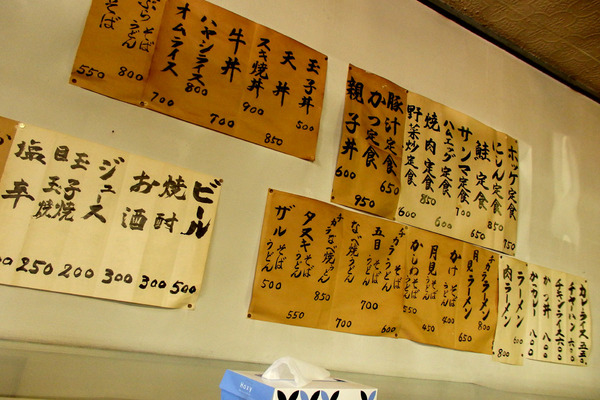 玉子丼 500
天丼 850
スキ焼丼 900
牛丼 700
ハヤシライス 800
オムライス 700
そば うどん 800
そば 550
ホッケ定食 750
にしん定食 850
鮭定食 650
サンマ定食 700
ハムエッグ定食 600
焼肉定食 850
野菜炒定食 600
豚汁定食 650
かつ定食 950
親子丼 600
ビール 500
焼酎 300
お酒 300
ジュース
目玉焼 玉子焼 200
塩辛 250
チカラーメン 800
月見ラーメン 650
かけ そば うどん 400
月見 そば うどん 450
かしわ そば うどん 550
チカラ そば うどん 600
五目 そば うどん 700
なべ焼うどん 700
チカラなべ焼うどん 850
タヌキ そば うどん 550
ザル そば うどん 500
カレーライス 五五〇
チャーハン 六〇〇
チキンライス 六〇〇
かつ丼 八〇〇
かつカレー 八〇〇
ラーメン 600
肉ラーメン 800
BOXY